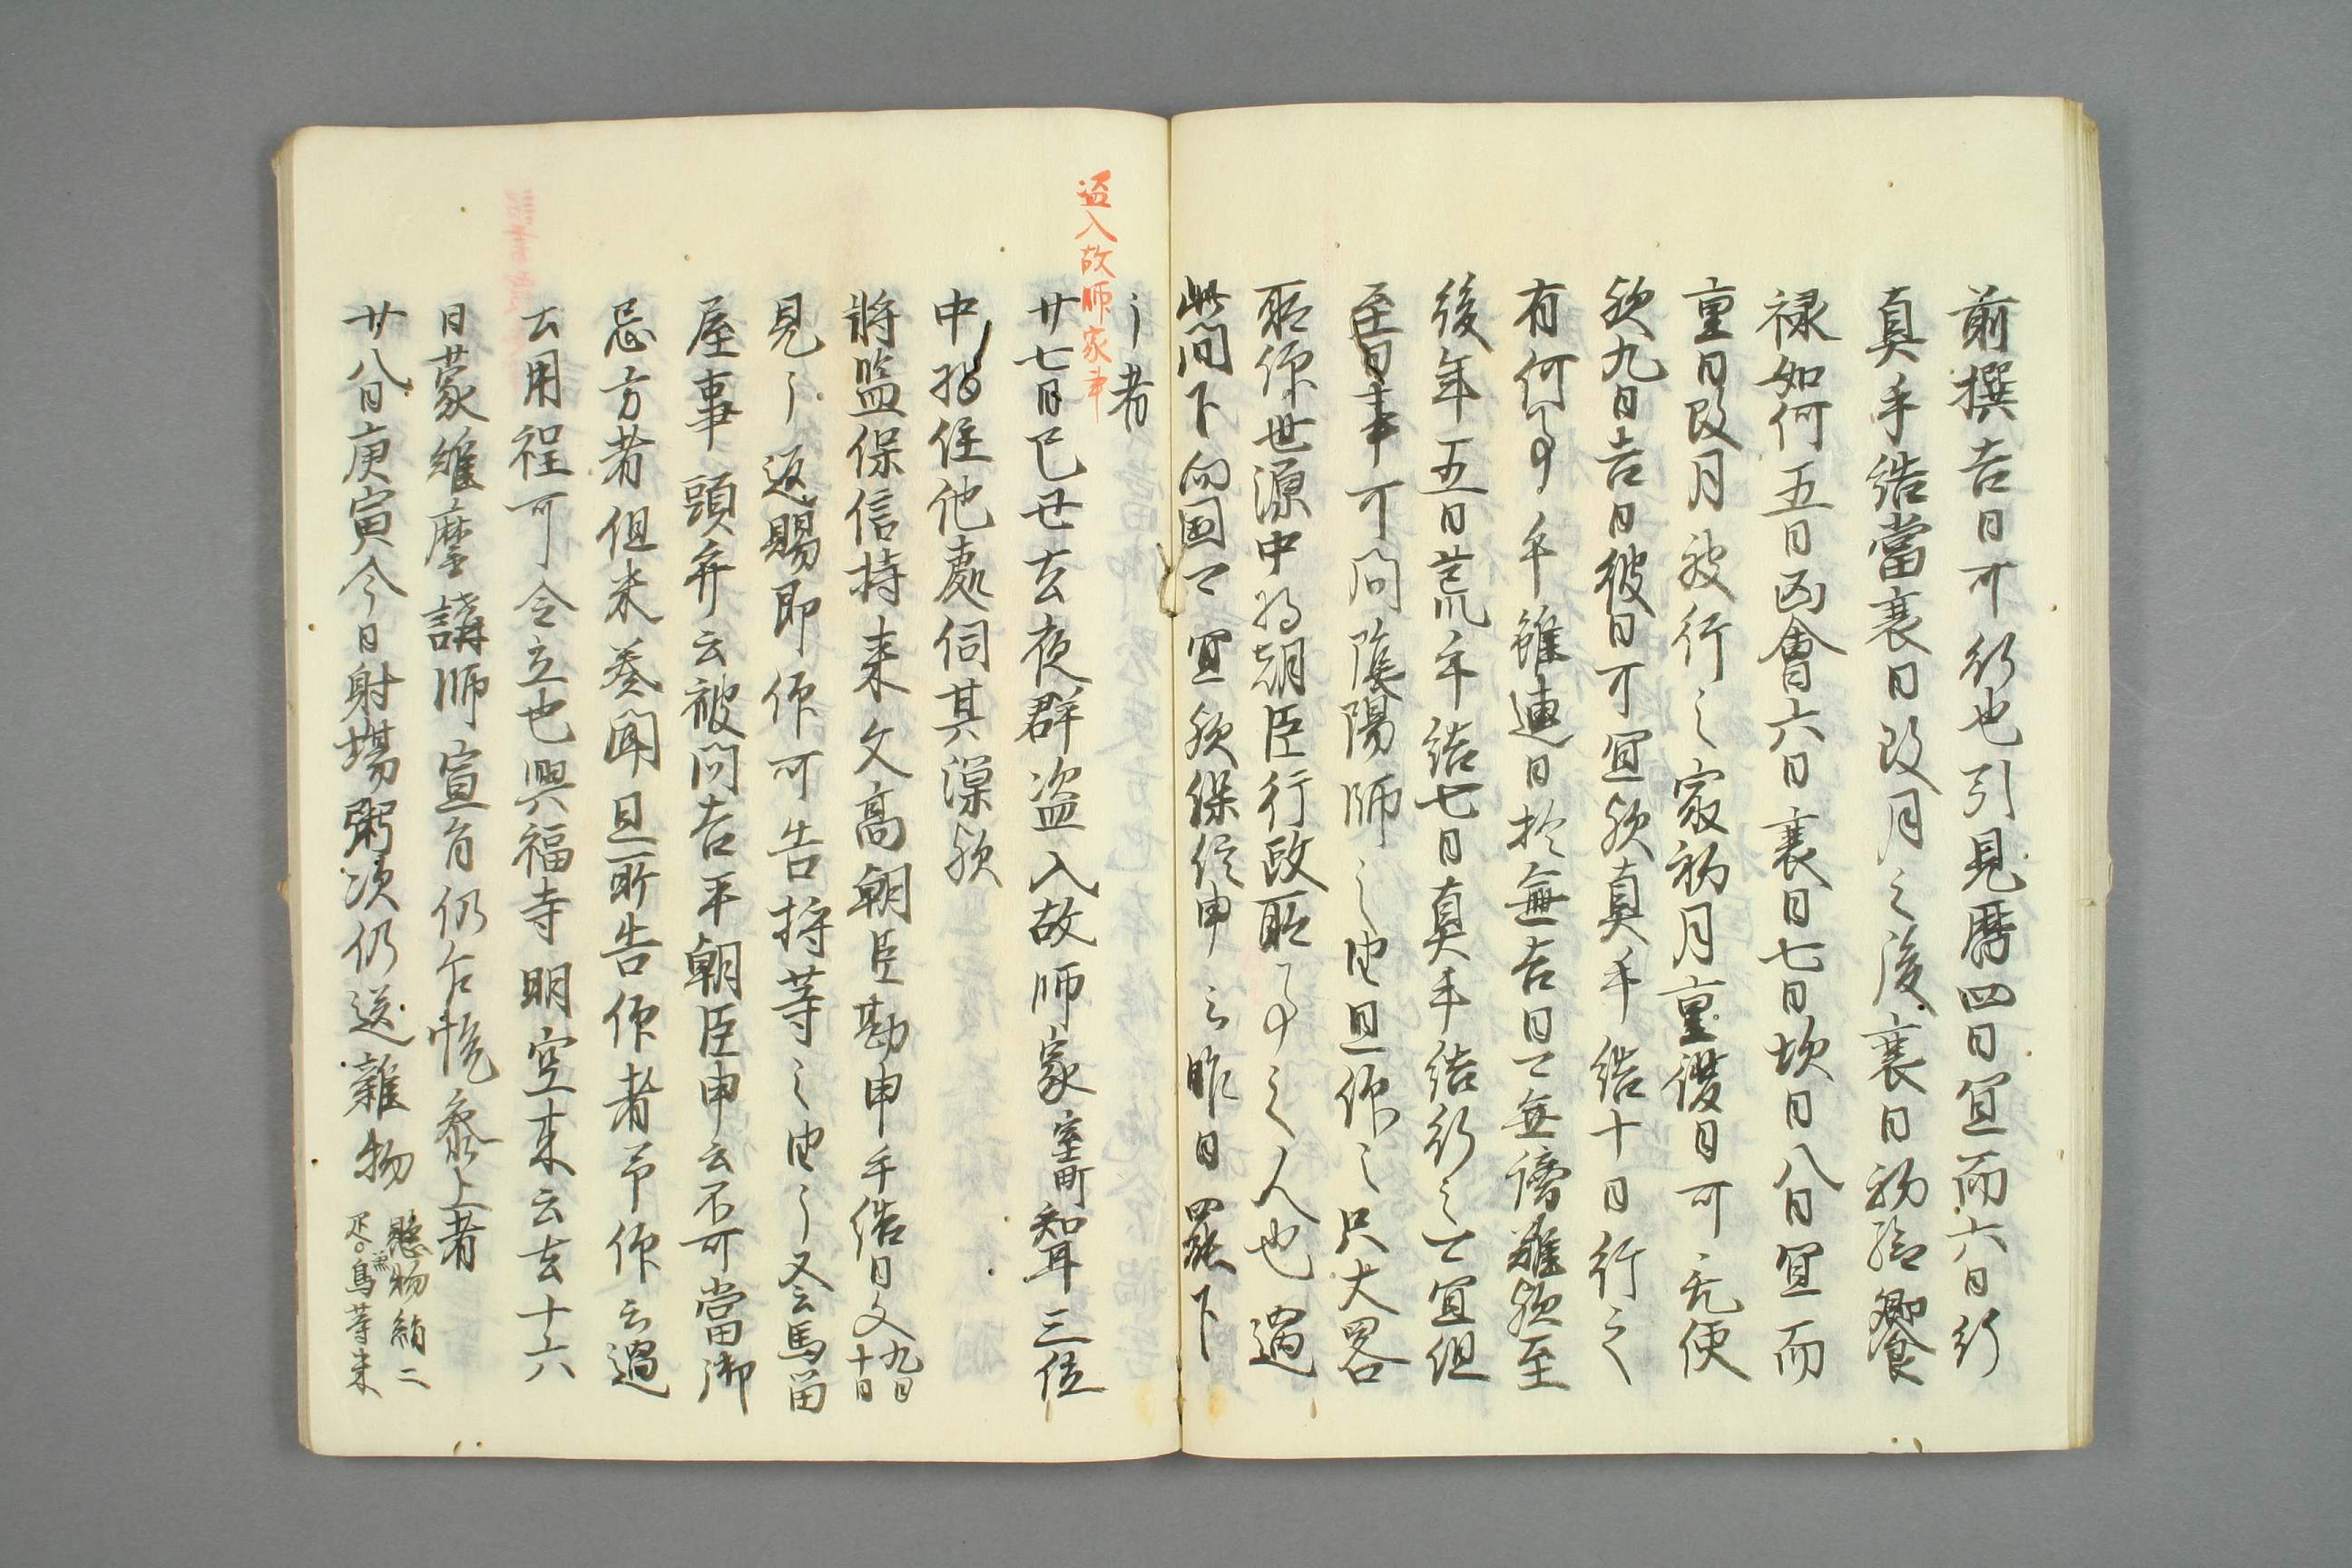 前撰吉日可行也引見暦四日宜而六日行
真手結當衰日改月之後衰日初給饗
禄如何五日凶會六日衰日七日坎日八日宜而
重日改月被行之家初月重復日可无便
欤九日吉日彼日可宜欤真手結十日行之
有何事乎雖連日於無吉日亡無謗難欤至
後年五日荒手結七日真手結行之亡宜但
至日事可問陰陽師之由且仰之只大略
所仰世源中将朝臣行政所事之人也過
此間下向国亡宜欤保信申云昨日罷下
了者
盗入故師家事
廿七日己丑去夜群盗入故師家室町聟三位
中将住他處伺其深欤
将監保信持来文高朝臣勘申手結日文九日十日
見了返賜即仰可告将等之由了又令馬留
屋事頭弁云被問吉平朝臣申云不可當御
忌方者但来奏聞且所告仰者予仰云過
云用程可令立也興福寺明空来云去十六
日蒙維摩講師宣旨仍乍悦参上者
廿八日庚寅今日射場粥次仍送雜物
懸物絹二
疋鳥等来